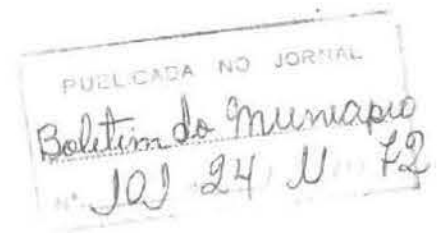 PUBLICADA NO JORNAL
Boletim do Municipio
Nº 101 24 11 72